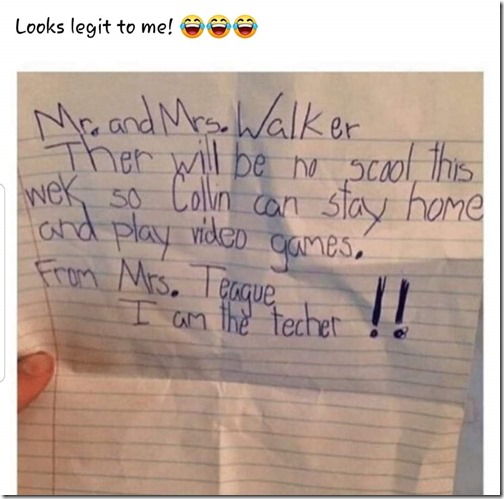 Looks legit to me! 😂😂😂
Mr. and Mrs. Walker
Ther will be no scool this
wek, so Collin can stay home
and play video games.
From Mrs. Teague
I am the techer !!